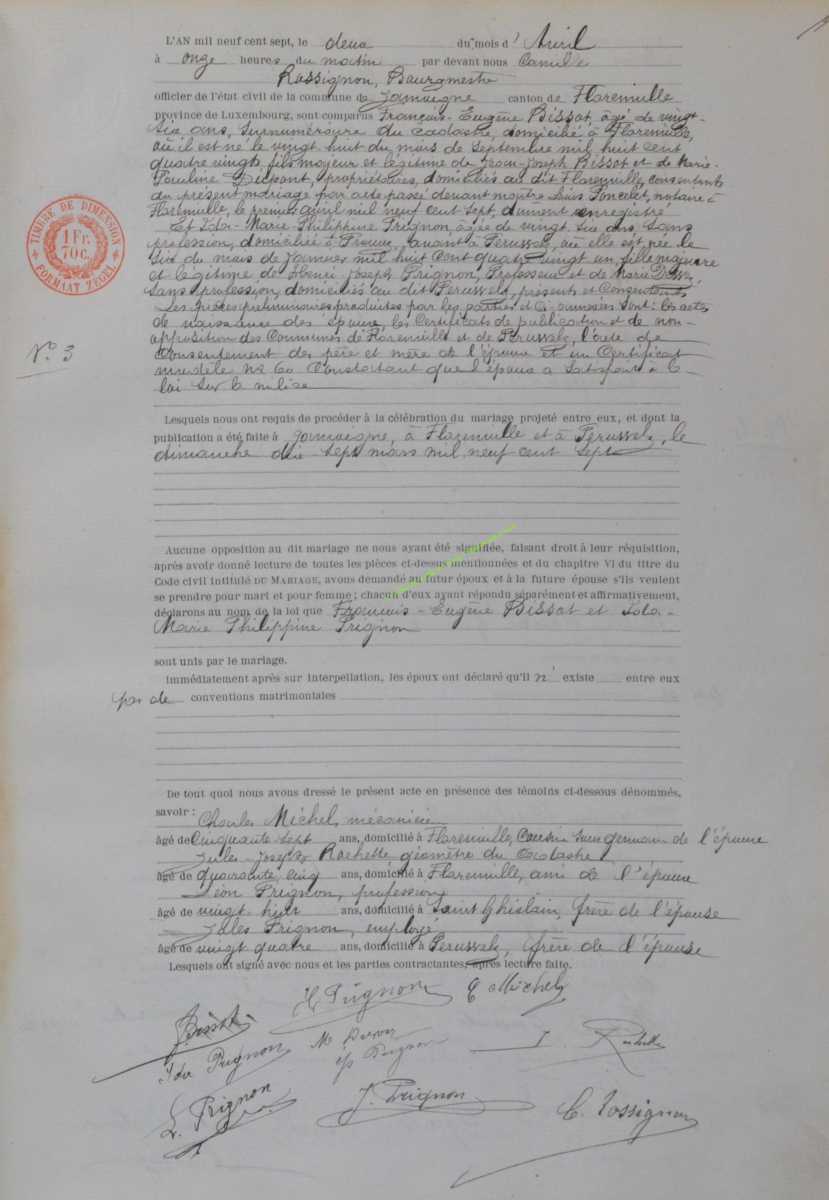 L'AN mil neuf cent sept, le deux du mois d'Avril
à onze heures du matin par devant nous Camille
Rossignon, Bourgmestre
officier de l'état civil de la commune de Jamoigne canton de Florenville
province de Luxembourg, sont comparus François-Eugène Bissot, âgé de vingt-
six ans, surnuméraire du cadastre, domicilié à Florenville,
où il est né le vingt huit du mois de Septembre mil huit cent
quatre vingt, fils majeur et légitime de Jean-Joseph Bissot et de Marie-
Pauline propriétaires, domiciliés au dit Florenville, consentants
au présent mariage par acte passé devant maître Louis Poncelet, notaire à
Florenville, le premier avril mil neuf cent sept, dûment enregistré
Et Ida-Marie Philippine Prignon, âgée de vingt six ans, sans
profession, domiciliée à avant à où elle est née le
six du mois de Janvier mil huit cent quatre vingt un fille majeure
et légitime de Henri-Joseph Prignon, Professeur et de Marie
sans profession, domiciliés au dit présents et consentants
Les pièces préliminaires produites par les parties et ci-annexées sont: les actes
de naissance des époux, les certificats de publication et de non-
opposition des communes de Florenville et de l'acte de
consentement des père et mère de l'époux et un certificat
modèle No 60 constatant que l'époux a satisfait à la
loi sur la milice
TIMBRE DE DIMENSION
1 Fr.
70 c.
FORMAAT ZEGEL
No 3
Lesquels nous ont requis de procéder à la célébration du mariage projeté entre eux, et dont la
publication a été faite à Jamoigne, à Florenville et à le
dimanche dix sept mars mil neuf cent sept
Aucune opposition au dit mariage ne nous ayant été signifiée, faisant droit à leur réquisition,
après avoir donné lecture de toutes les pièces ci-dessus mentionnées et du chapitre VI du titre du
Code civil intitulé DU MARIAGE, avons demandé au futur époux et à la future épouse s'ils veulent
se prendre pour mari et pour femme; chacun d'eux ayant répondu séparément et affirmativement,
déclarons au nom de la loi que François-Eugène Bissot et Ida-
Marie Philippine Prignon
sont unis par le mariage.
Immédiatement après sur interpellation, les époux ont déclaré qu'il n' existe entre eux
pas de conventions matrimoniales
De tout quoi nous avons dressé le présent acte en présence des témoins ci-dessous dénommés,
savoir : Charles Michel, mécanicien
âgé de cinquante sept ans, domicilié à Florenville, cousin sous germain de l'épouse
Jules-Joseph Rochette géomètre du Cadastre
âgé de quarante cinq ans, domicilié à Florenville, ami de l'époux
Léon Prignon, professeur
âgé de vingt huit ans, domicilié à Saint Ghislain, frère de l'épouse
Jules Prignon, employé
âgé de vingt quatre ans, domicilié à frère de l'épouse
Lesquels ont signé avec nous et les parties contractantes, après lecture faite.
H Prignon C Michel
Bissot
Ida Prignon M
Prignon
L. Prignon J. Prignon C. Rossignon